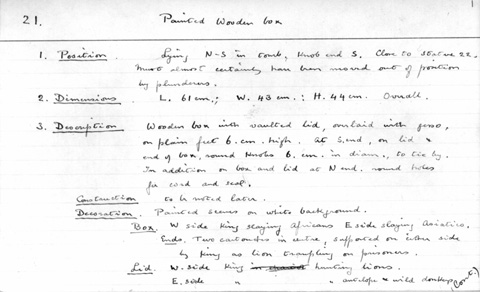 1
21. Painted Wooden box
1. Position. Lying N-S in tomb, Knob end S. Close to statue 22.
Must almost certainly have been moved out of position
by plunderers.
2. Dimensions. L. 61 cm.; W. 43 cm.; H. 44 cm. Overall.
3. Description Wooden box with vaulted lid, overlaid with gesso,
on plain feet 6. cm. high. At S. end, on lid &
end of box, round Knobs 6. cm. in diam., to tie by.
In addition on box and lid at N end. round holes
for cord and seal.
Construction to be noted later.
Decoration. Painted scenes on white background.
Box. W side King slaying Africans E. side slaying Asiatics.
Ends. Two cartouches in centre, supported on either side
by King as lion trampling on prisoners.
Lid. W. side King in chariot hunting lions.
E. side " " antelope & wild donkeys